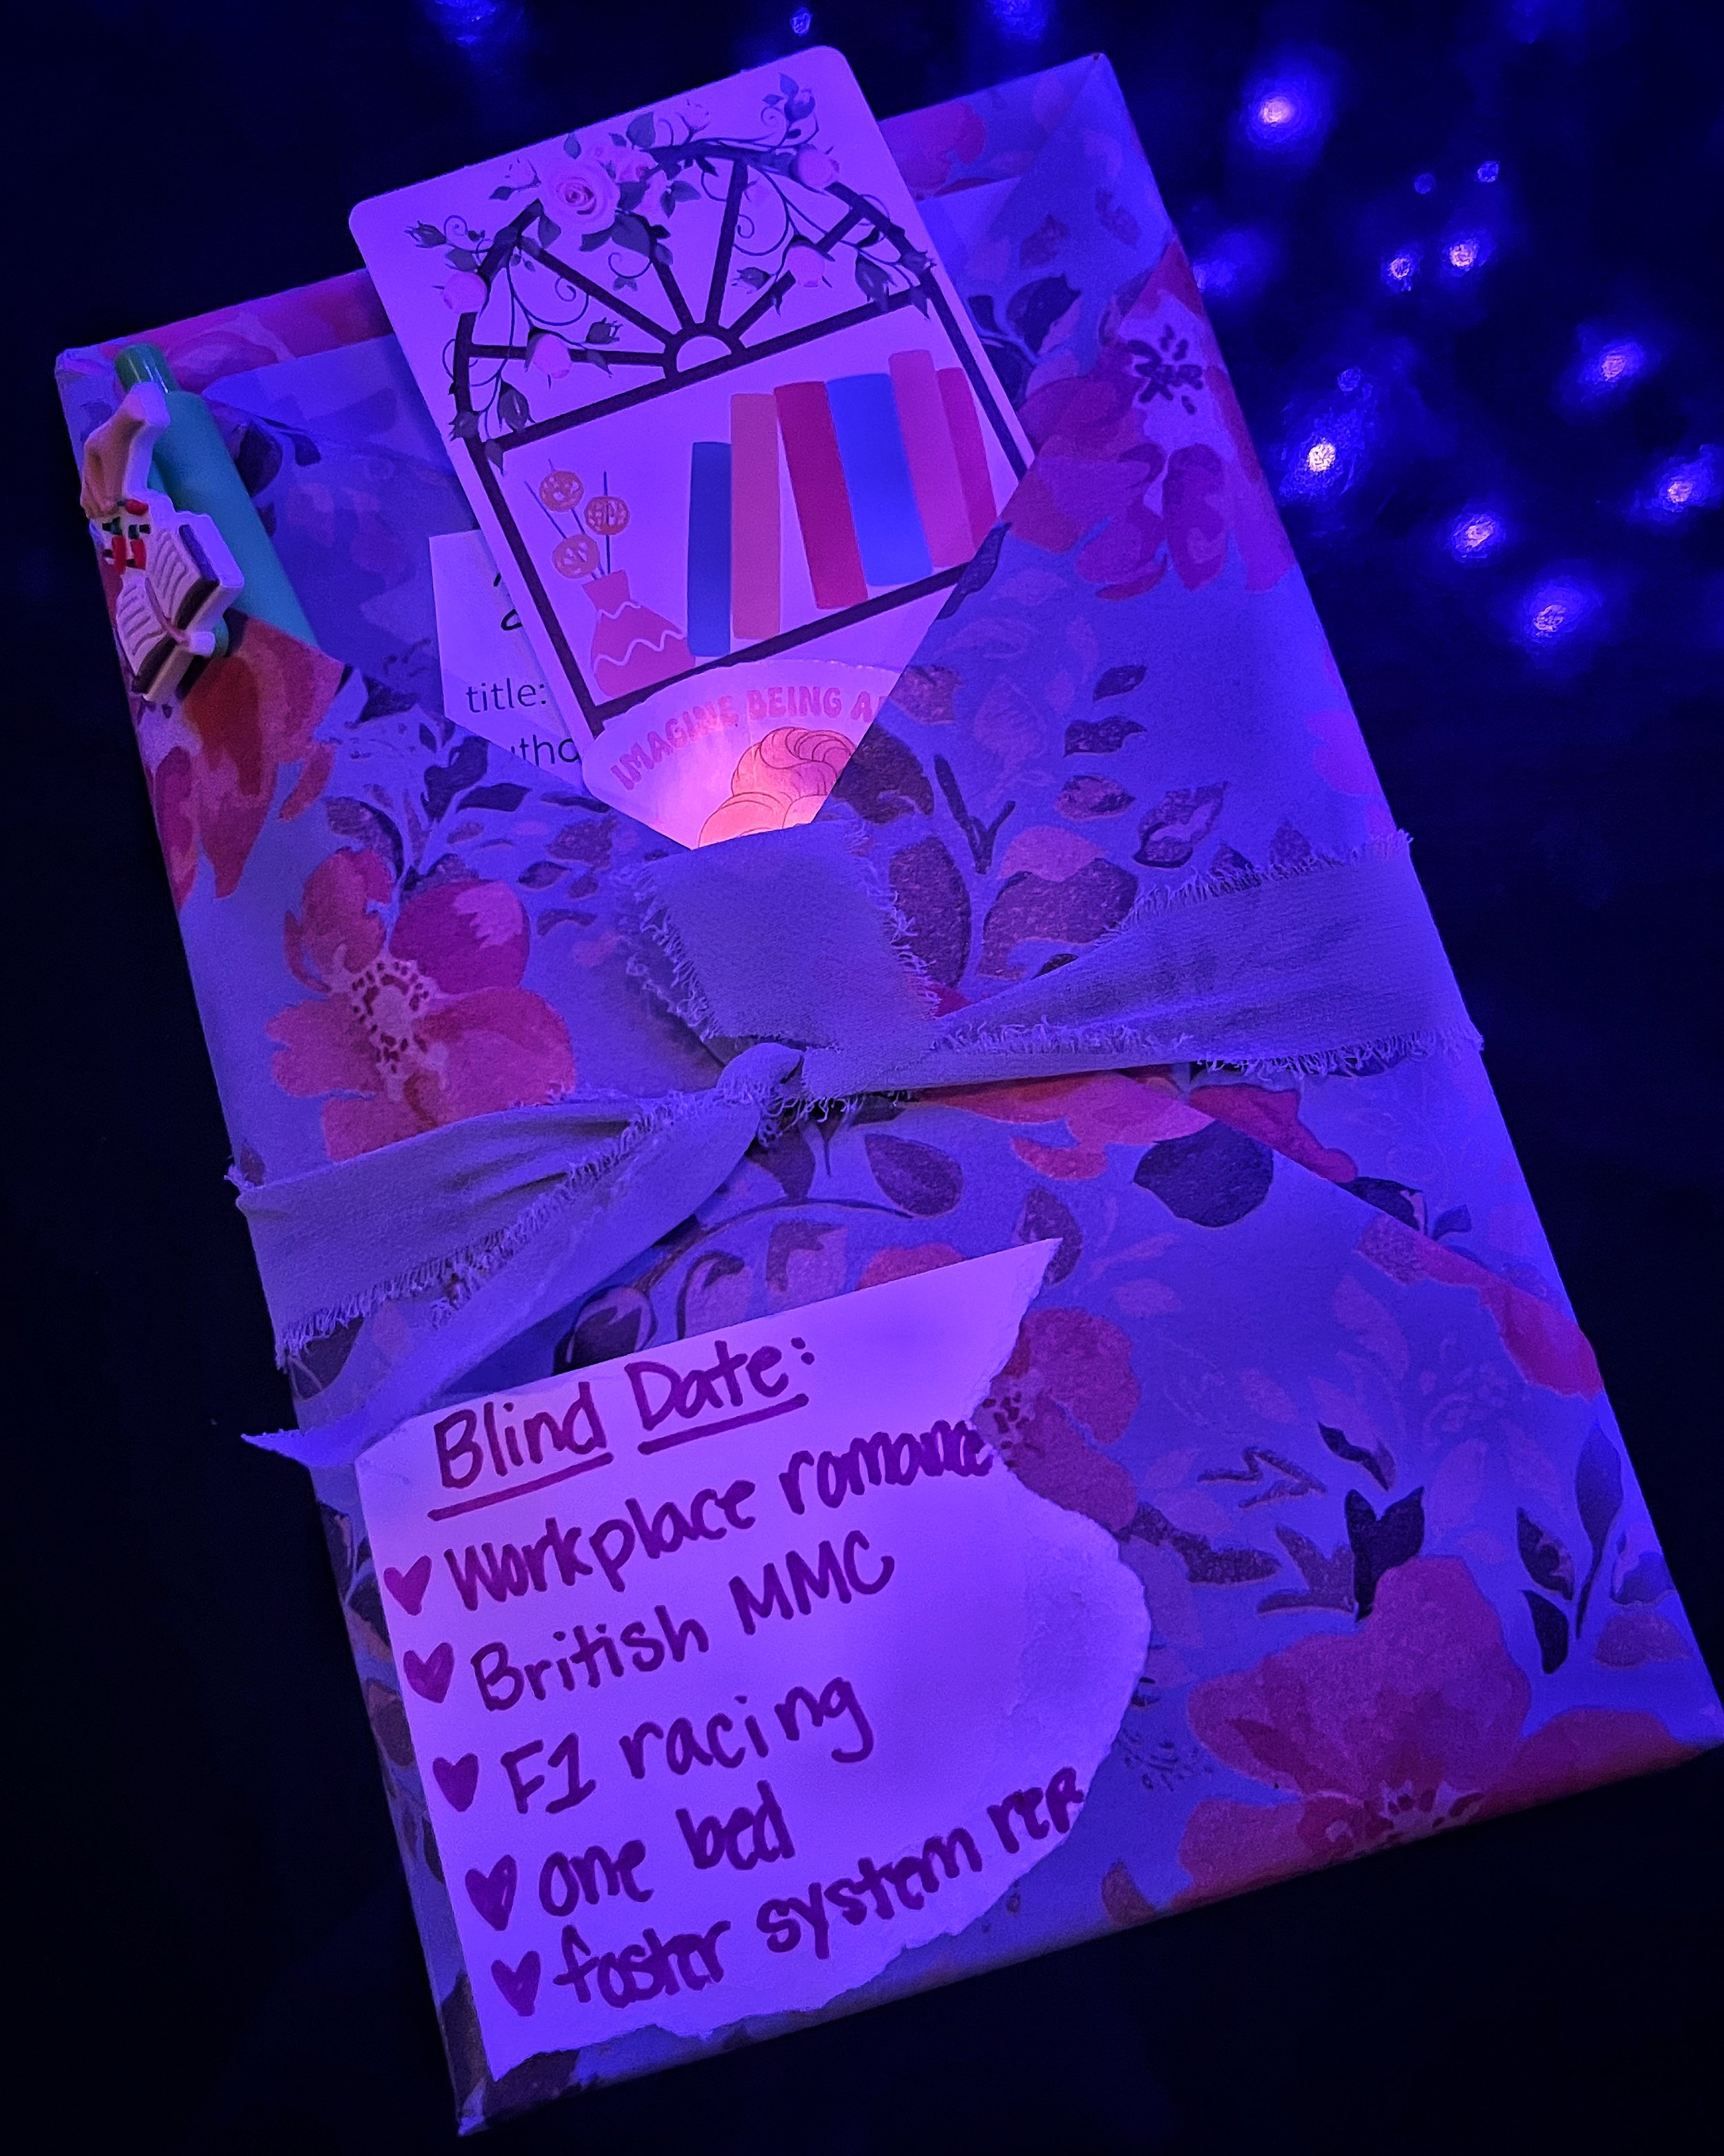 title:
IMAGINE BEING
Blind Date:
Workplace romance
British MMC
F1 racing
one bed
foster system rep